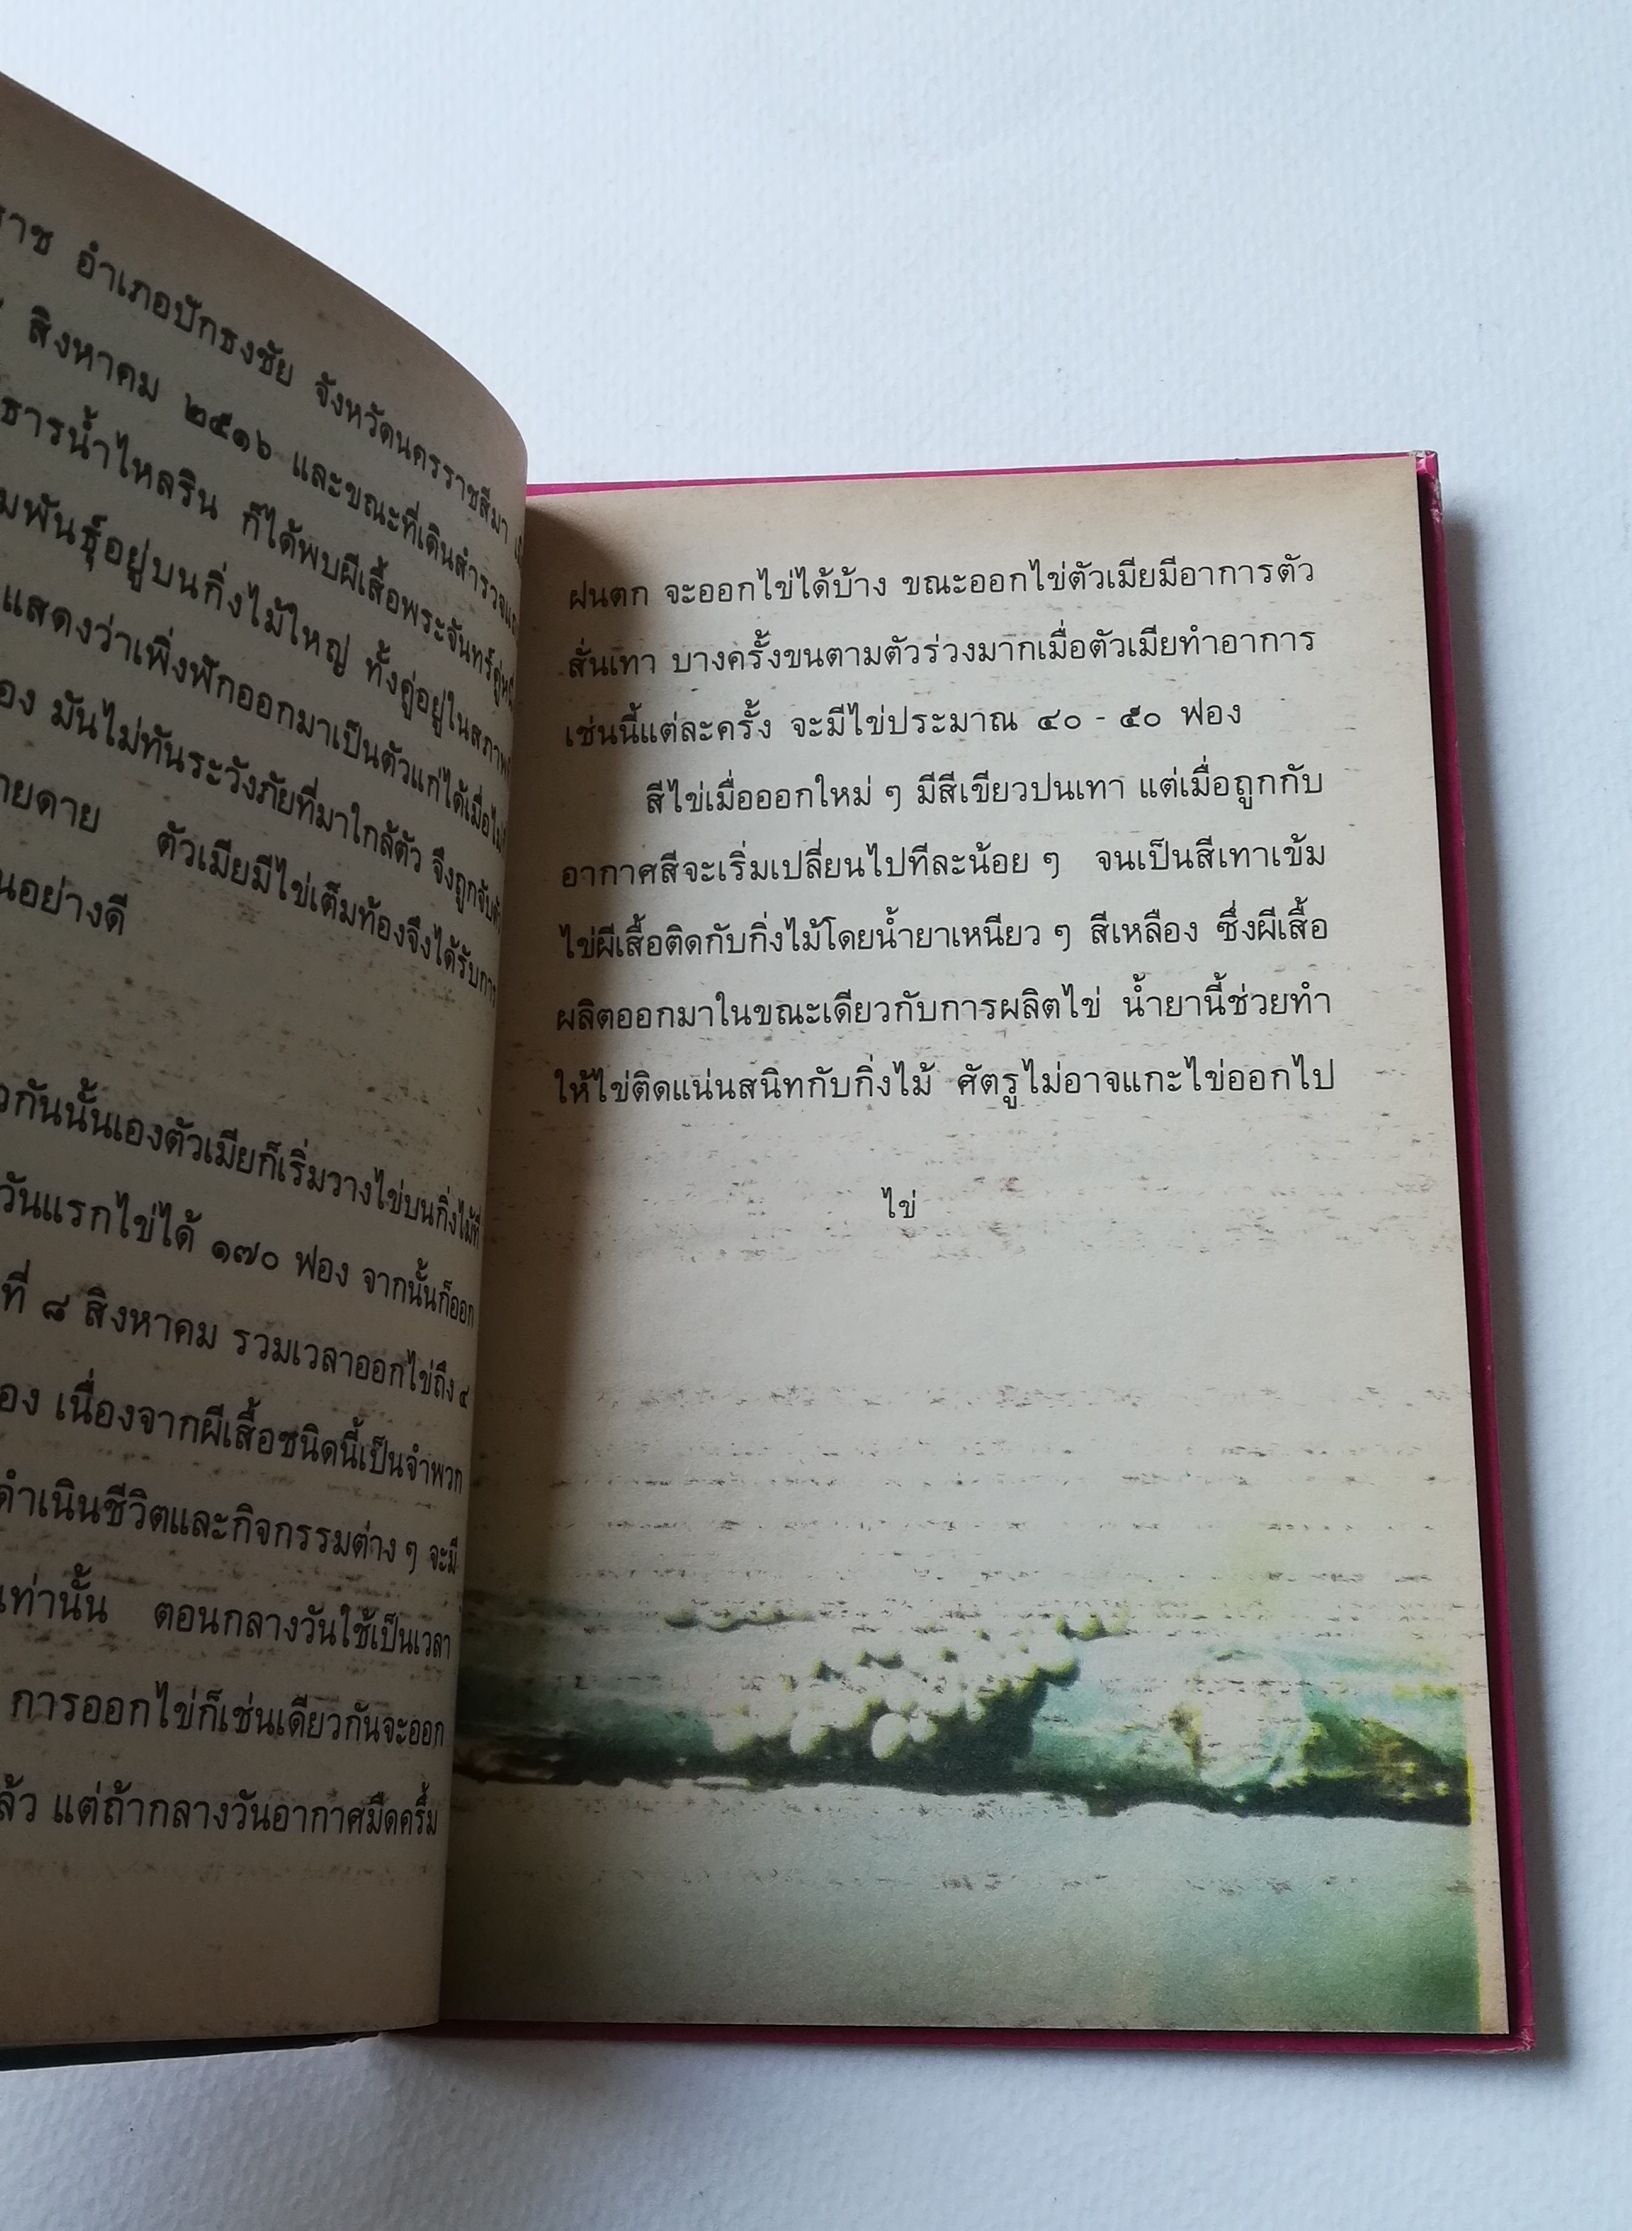 ราช อำเภอปักธงชัย จังหวัดนครราชสีมา
สิงหาคม ๒๕๑๖ และขณะที่เดินสำรวจ
ธารน้ำไหลริน ก็ได้พบผีเสื้อพระจันทร์คู่หนึ่ง
มพันธุ์อยู่บนกิ่งไม้ใหญ่ ทั้งคู่อยู่ในสภาพ
แสดงว่าเพิ่งฟักออกมาเป็นตัวแก่ได้เมื่อไม่
อง มันไม่ทันระวังภัยที่มาใกล้ตัว จึงถูกจับ
ายดาย ตัวเมียมีไข่เต็มท้องจึงได้รับการ
นอย่างดี
วกันนั้นเองตัวเมียก็เริ่มวางไข่บนกิ่งไม้ที่
วันแรกไข่ได้ ๑๗๐ ฟอง จากนั้นก็ออก
ที่ ๘ สิงหาคม รวมเวลาออกไข่ถึง ๔
อง เนื่องจากผีเสื้อชนิดนี้เป็นจำพวก
ดำเนินชีวิตและกิจกรรมต่าง ๆ จะมี
เท่านั้น ตอนกลางวันใช้เป็นเวลา
การออกไข่ก็เช่นเดียวกันจะออก
ล้ว แต่ถ้ากลางวันอากาศมืดครึ้ม
ฝนตก จะออกไข่ได้บ้าง ขณะออกไข่ตัวเมียมีอาการตัว
สั่นเทา บางครั้งขนตามตัวร่วงมากเมื่อตัวเมียทำอาการ
เช่นนี้แต่ละครั้ง จะมีไข่ประมาณ ๔๐ - ๕๐ ฟอง
สีไข่เมื่อออกใหม่ ๆ มีสีเขียวปนเทา แต่เมื่อถูกกับ
อากาศสีจะเริ่มเปลี่ยนไปทีละน้อย ๆ จนเป็นสีเทาเข้ม
ไข่ผีเสื้อติดกับกิ่งไม้โดยน้ำยาเหนียว ๆ สีเหลือง ซึ่งผีเสื้อ
ผลิตออกมาในขณะเดียวกับการผลิตไข่ น้ำยานี้ช่วยทำ
ให้ไข่ติดแน่นสนิทกับกิ่งไม้ ศัตรูไม่อาจแกะไข่ออกไป
ไข่